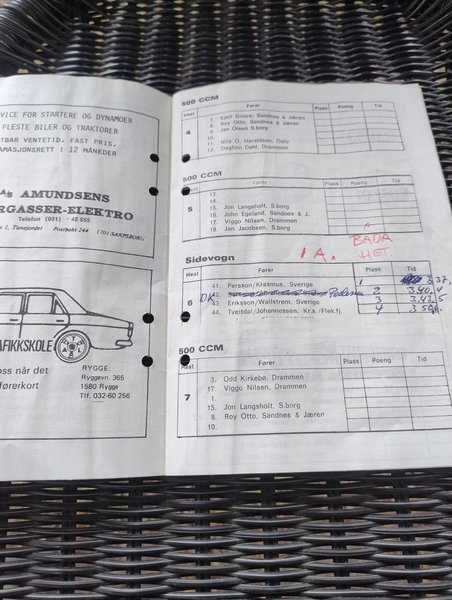 VICE FOR STARTERE OG DYNAMOER
FLESTE BILER OG TRAKTORER
TBAR VENTETID, FAST PRIS,
AMASJONSRETT I 12 MÅNEDER
AMUNDSENS
RGASSER-ELEKTRO
Telefon (031) - 42 555
1, Tunejordet Postboks 244 1701 SARPSBORG
AFIKKSKOLE
oss når det
førerkort
RYGGE:
Ryggevn. 365
1580 Rygge
Tlf. 032-60 256
500 CCM
Heat Fører Plass Poeng Tid
4
7. Kjell Gimre, Sandnes & Jæren
8. Roy Otto, Sandnes & Jæren
9. Jan Olsen S.borg
11. Nils O. Haraldsen, Oslo
12. Dagfinn Dahl, Drammen
500 CCM
Heat Fører Plass Poeng Tid
5
13.
14.
15. Jon Langsholt, S.borg
16. John Egeland, Sandnes & J.
17. Viggo Nilsen, Drammen
18. Jan Jacobsen, S.borg
1 A. BANA
HET.
Sidevogn
Heat Fører Plass Tid
6
41. Persson/Krasmus, Sverige 1 3.37.
DK 42. 2 3.40.4
43. Eriksson/Wallstrøm, Sverige 3 3.43.5
44. Tveitdal/Johannessen, Kr.s /Flek.fj. 4
500 CCM
Heat Fører Plass Poeng Tid
7
3. Odd Kirkebø, Drammen
17. Viggo Nilsen, Drammen
1.
15. Jon Langsholt, S.borg
8. Roy Otto, Sandnes & Jæren
10.